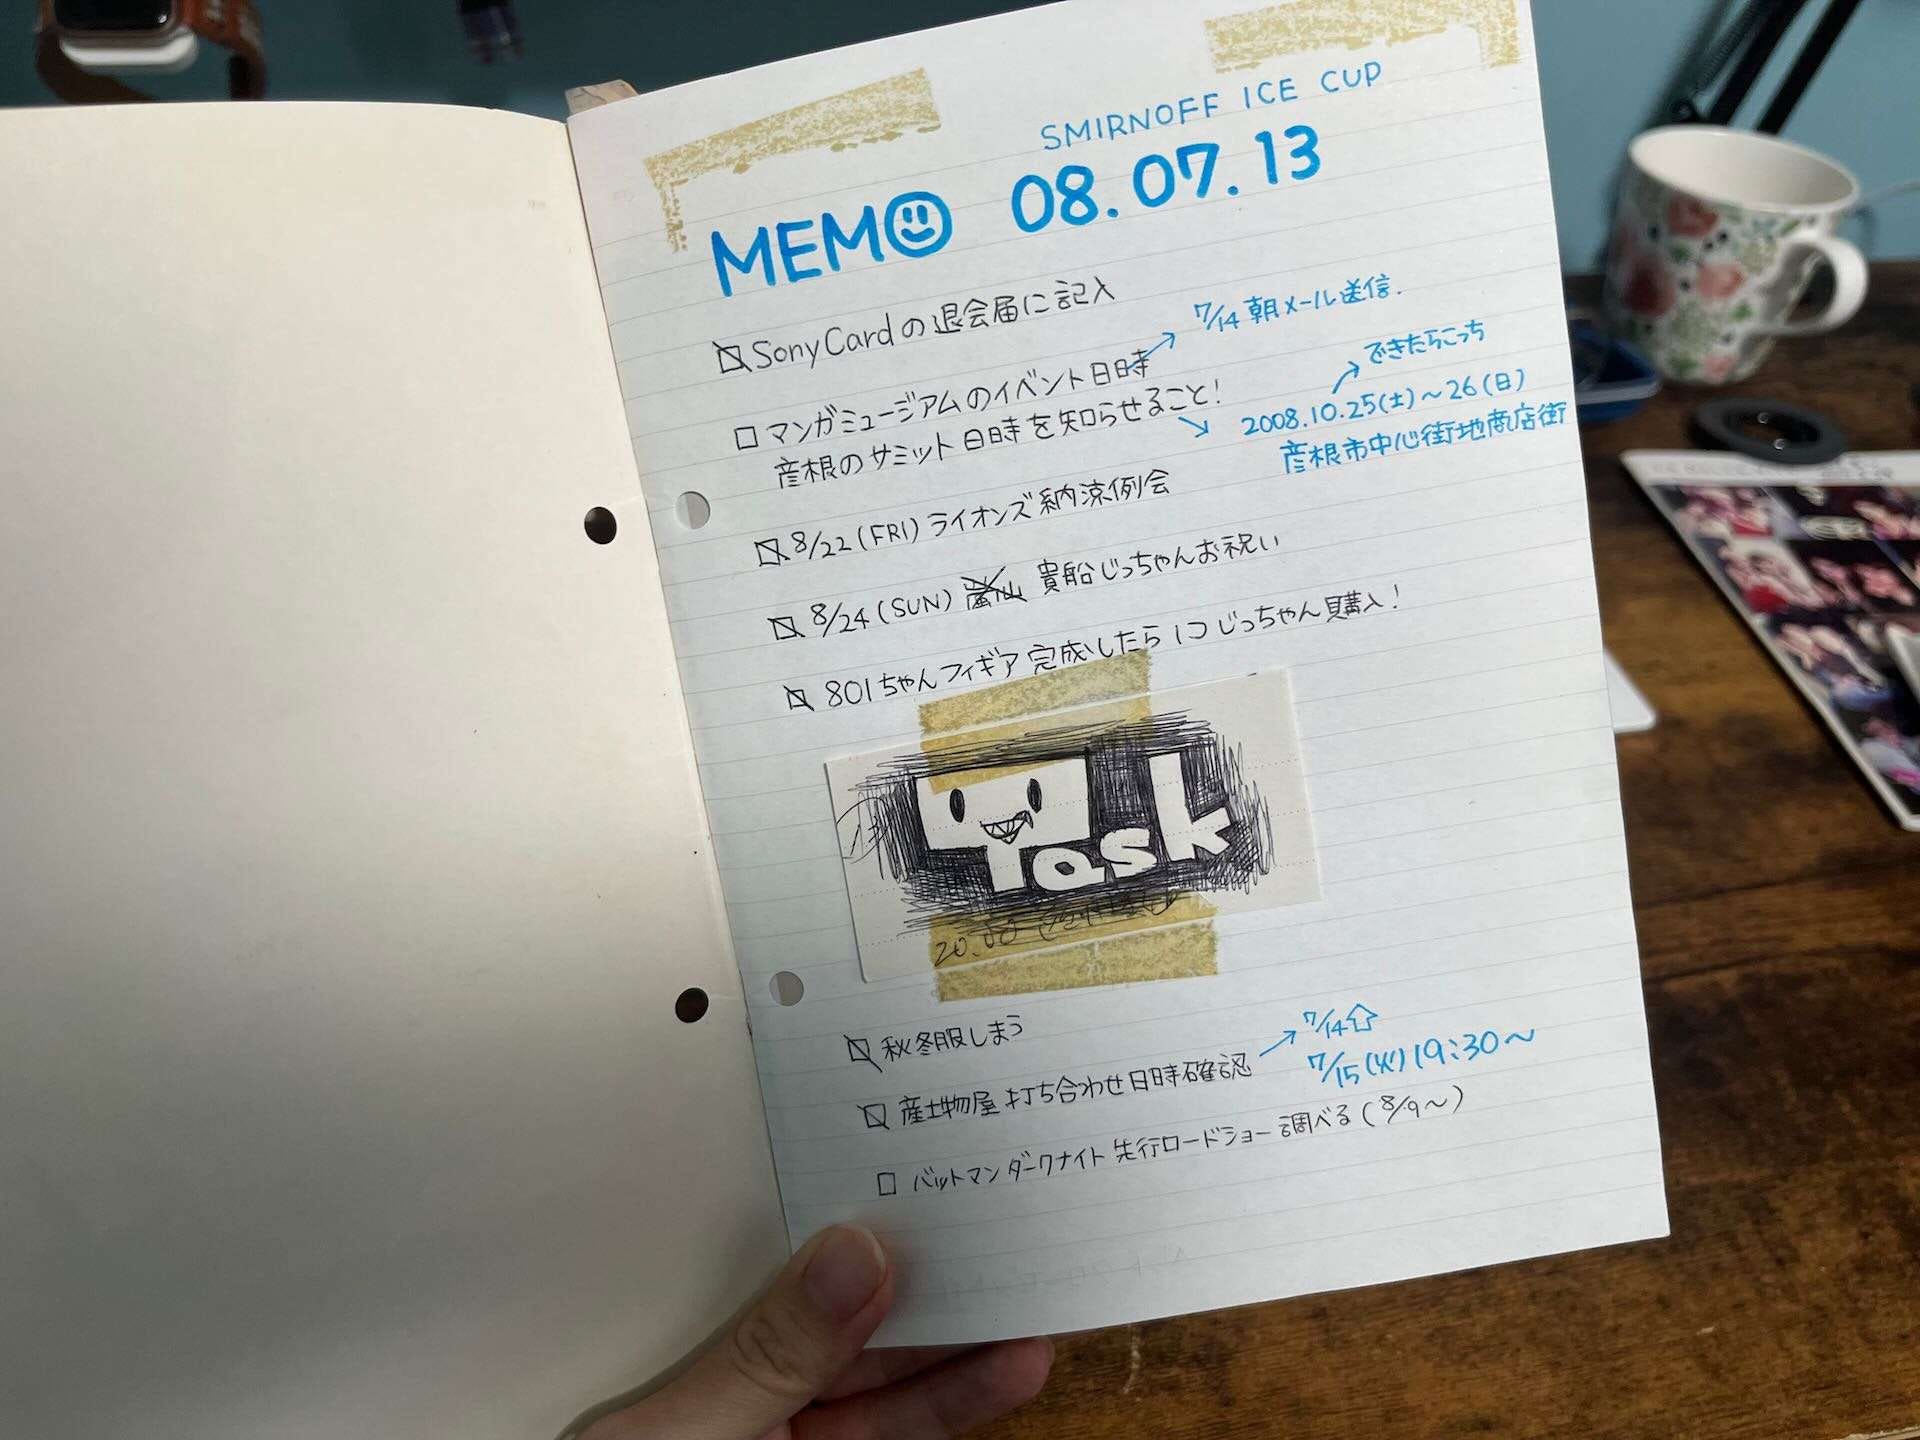 SMIRNOFF ICE CUP
MEMO 08.07.13
SonyCardの退会届に記入
マンガミュージアムのイベント日時
彦根のサミット日時を知らせること!
7/14 朝メール送信.
できたらこっち
2008.10.25(土)~26(日)
彦根市中心街地商店街
8/22(FRI)ライオンズ納涼例会
8/24(SUN) 嵐山 貴船じっちゃんお祝い
801ちゃんフィギア完成したら1コじっちゃん購入!
Task
20.00
秋冬服しまう
産土物屋 打ち合わせ日時確認
7/14
7/15(火)19:30~
バットマンダークナイト 先行ロードショー調べる(8/9~)